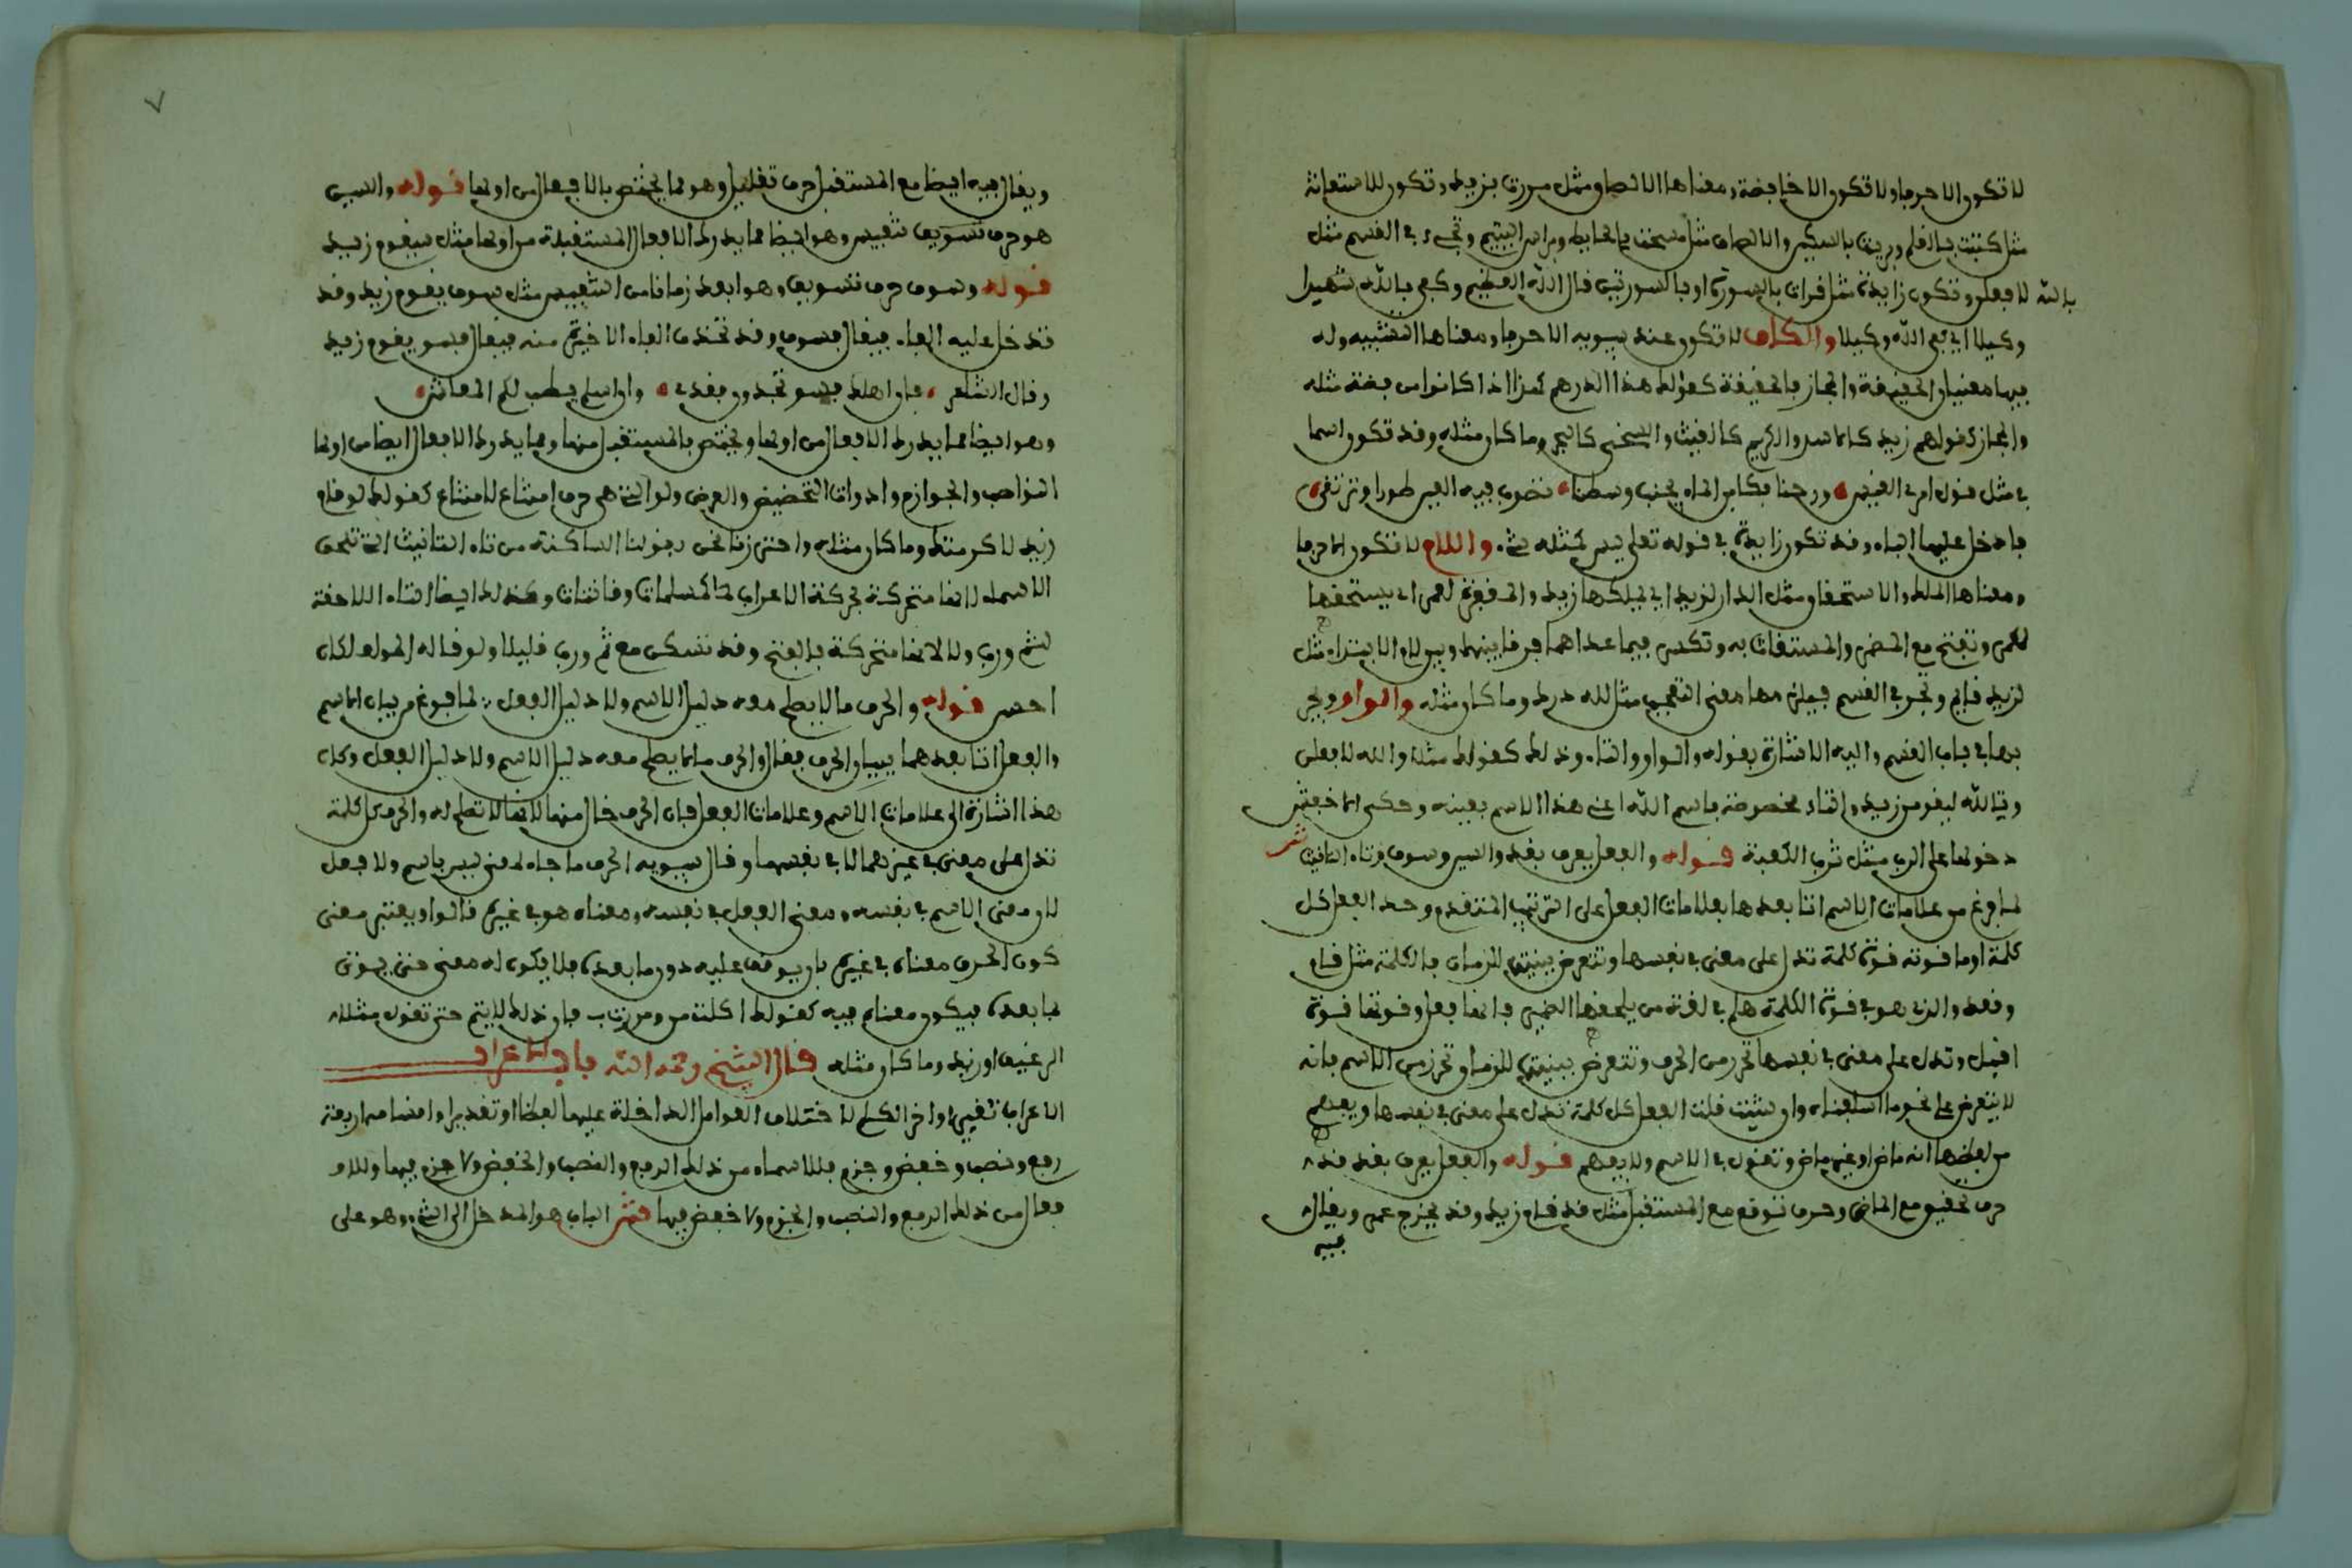 لا تكون الا حرفا ولا تكون الا خافضة ومعناها الالصاق مثل مررت بزيد وتكون للاستعانة
مثل كتبت بالقلم وبريت بالسكين والالصاق مثل مسحت بالحايط وبراس اليتيم وتجيء في القسم مثل
بالله لافعلن وتكون زايدة مثل قرات بالسورة او بالسورتين قال الله العظيم وكفى بالله شهيدا
وكيلا اي كفى الله وكيلا والكاف لا تكون عند سيبويه الا حرفا ومعناها التشبيه وله
فيها معنيان الحقيقة والمجاز فالحقيقة كقولك هذا الدرهم كهذا اذا كانوا من فضة مثله
والمجاز كقولهم زيد كالاسد والكريم كالغيث والسخي كالبحر وما كان مثله وقد تكون اسما
في مثل قول امرئ القيس ورحنا بكابن الماء يجنب وسطنا تصوب فيه العين طورا وترتقي
فادخل عليها الباء وقد تكون زايدة في قوله تعلى ليس كمثله شيء واللام لا تكون الا حرفا
ومعناها الملك والاستحقاق مثل الدار لزيد اي يملكها زيد والمغفرة لعمر اي يستحقها
عمر وتفتح مع المضمر والمستغاث به وتكسر فيما عداهما فرقا بينها وبين لام الابتداء مثل
لزيد قايم وتجر في القسم فيلزمها معنى التعجب مثل لله درك وما كان مثله والواو ويجر
بها في باب القسم واليه الاشارة بقوله والواو والتاء وذلك كقولك مثلا والله لافعلن
وتالله ليقومن زيد والتاء مخصوصة باسم الله اعني هذا الاسم بعينه وحكى الاخفش
دخولها على الرب مثل ترب الكعبة قوله والفعل يعرف بقد والسين وسوف وتاء التانيث ش
لما فرغ من علامات الاسم اتا بعدها بعلامات الفعل على الترتيب المتقدم وحد الفعل كل
كلمة او ما قوته قوة كلمة تدل على معنى في نفسها وتتعرض ببنيتها للزمان فالكلمة مثل قام
وقعد والذي هو في قوة الكلمة هلم في لغة من يلحقها الضمير فانها فعل وقوتها قوة
اقبل وتدل على معنى في نفسها تحرز من الحرف وتتعرض ببنيتها للزمان تحرز من الاسم بانه
لا يتعرض على نحو ما اسلفناه وان شيت قلت الفعل كل كلمة تدل على معنى في نفسها ويفهم
من لفظها انه ماض او غير ماض وتقول في الاسم ولا يفهم قوله والفعل يعرف بقد قد
حرف تحقيق مع الماضي وحرف توقع مع المستقبل مثل قد قام زيد وقد يخرج عمر ويقال
فيه
٧
ويقال فيه ايضا مع المستقبل حرف تقليل وهو مما يختص بالافعال من اولها قوله والسين
هو حرف تسويف تنفيس وهو ايضا مما يدرك الافعال المستقبلة من اولها مثل سيقوم زيد
قوله وسوف حرف تسويف وهو ابعد زمانا من التنفيس مثل سوف يقوم زيد وقد
تدخل عليه الفاء فيقال فسوف وقد تحذف الفاء الاخيرة منه فيقال فسو يقوم زيد
وقال الشاعر فان اهلك فسو تجدون فقدي وان اسلم يطب لكم المعاش
وهو ايضا مما يدرك الافعال من اولها ويختص بالمستقبل منها ومما يدرك الافعال ايضا من اولها
النواصب والجوازم وادوات التحضيض والعرض ولو التي هي حرف امتناع لامتناع كقولك لو قام
زيد لاكرمتك وما كان مثله واحترزنا نحن بقولنا الساكنة من تاء التانيث التي تلحق
الاسماء لانها متحركة بحركة الاعراب كالمسلمات وقانتات وكذلك ايضا التاء اللاحقة
لثم ورب ولا لانها متحركة بالفتح وقد تسكن مع ثم ورب قليلا ولو قاله المولف لكان
احصر قوله والحرف ما لا يصلح معه دليل الاسم ولا دليل الفعل لما فرغ من بيان الاسم
والفعل اتا بعدهما ببيان الحرف فقال والحرف ما لا يصلح معه دليل الاسم ولا دليل الفعل وكان
هذا اشارة الى علامات الاسم وعلامات الفعل فان الحرف خال منها لانها لا تصلح له والحرف كل كلمة
تدل على معنى في غيرها لا في نفسها وقال سيبويه الحرف ما جاء لمعنى ليس باسم ولا فعل
لان معنى الاسم في نفسه ومعنى الفعل في نفسه ومعناه هو في غيره قالوا ويعتبر معنى
كون الحرف معناه في غيره بان يوقف عليه دون ما بعده فلا يكون له معنى حتى يوتى
بما بعده فيكون معناه فيه كقولك اكلت من ومررت ب فان ذلك لا يتم حتى تقول مثلا
الرغيف او زيد وما كان مثله قال الشيخ رحمه الله باب الاعراب
الاعراب تغيير اواخر الكلم لاختلاف العوامل الداخلة عليها لفظا او تقديرا واقسامه اربعة
رفع ونصب وخفض وجزم فللاسماء من ذلك الرفع والنصب والخفض ولا جزم فيها وللا
فعال من ذلك الرفع والنصب والجزم ولا خفض فيها ش الباب هو المدخل الى الشيء وهو على